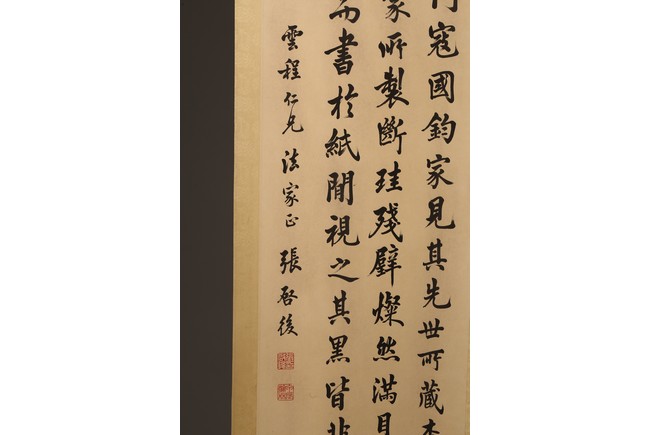 寇國鈞家見其先世所藏
家所製斷珪殘璧燦然滿
而書於紙閒視之其黑皆非
雲程仁兄法家正 張啓後